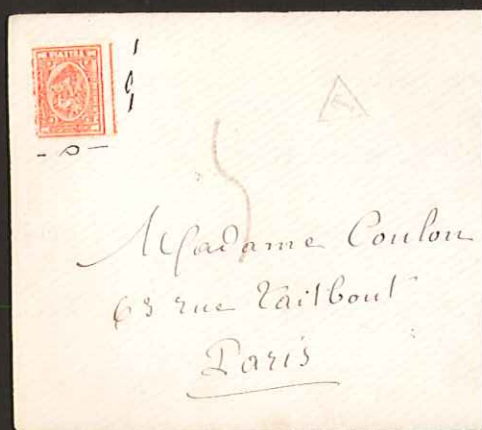 Madame Coulon
63 rue Taitbout
Paris